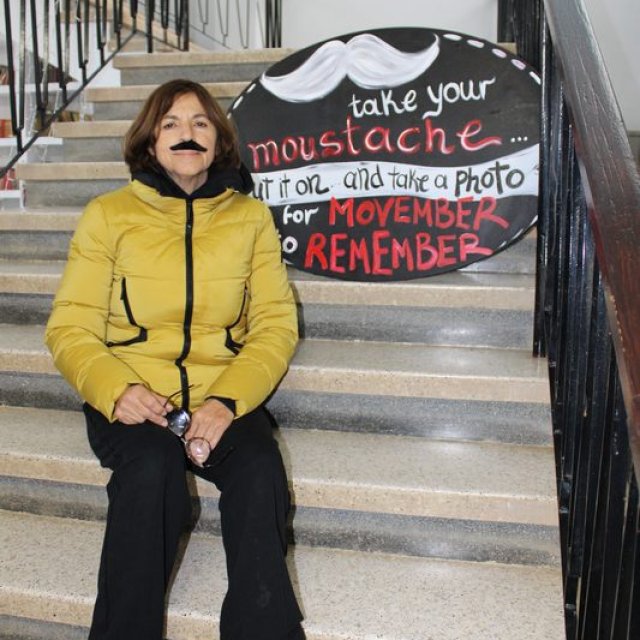 take your
moustache...
ut it on and take a PHOTO
for MOVEMBER
o REMEMBER